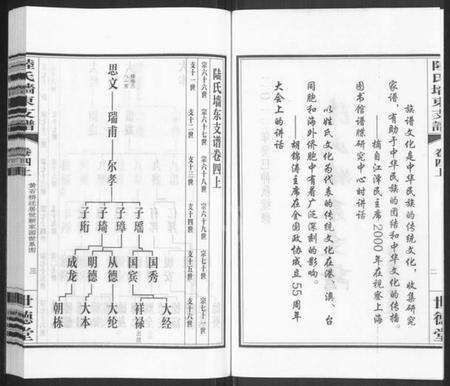 陆氏墙东支谱
卷四上
二
世德堂
族谱文化是中华民族的传统文化，收集研究
家谱，有助于中华民族的团结和中华文化的传播。
——摘自江泽民主席2000年在视察上海
图书馆谱牒研究中心时讲话
以姓氏文化为代表的传统文化在港、澳、台
同胞和海外侨胞中有着广泛深刻的影响。
——胡锦涛主席在全国政协成立55周年
大会上的讲话
陆氏墙东支谱卷四上
宗六十六世 宗六十七世 宗六十八世 宗六十九世 宗七十世 宗七十一世
支十一世 支十二世 支十三世 支十四世 支十五世 支十六世
思文 瑞甫 尔孝
子瑶 子璋 子琦 子珩
国秀 国宾 从德 明德 成龙
大经 祥禄 大纶 大本 朝栋
陆氏墙东支谱
卷四上
三
世德堂